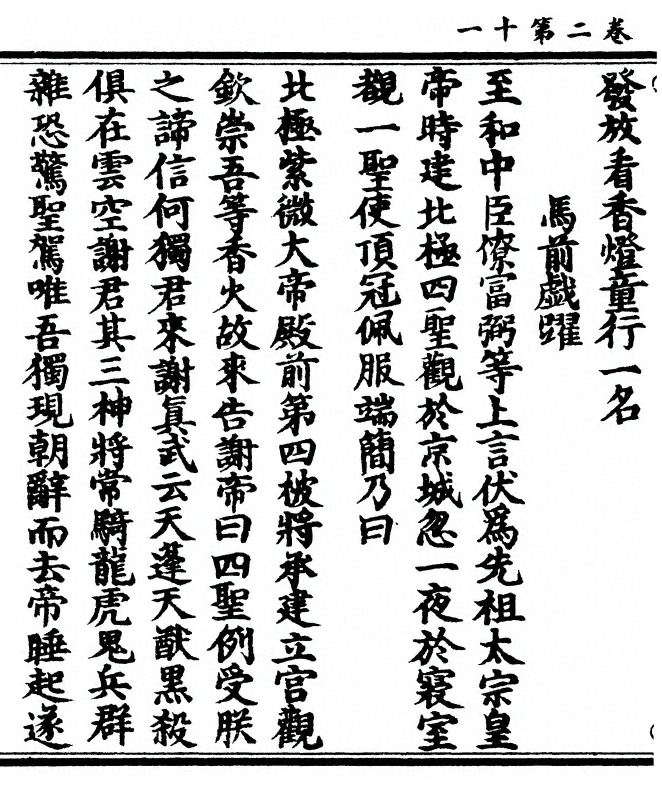 卷二第十一
發放看香燈童行一名
馬前戲躍
至和中臣僚富弼等上言伏爲先祖太宗皇
帝時建北極四聖觀於京城忽一夜於寢室
觀一聖使頂冠佩服端簡乃曰
北極紫微大帝殿前第四被將承建立官觀
欽崇吾等香火故來告謝帝曰四聖例受朕
之諦信何獨君來謝眞武云天蓬天猷黑殺
俱在雲空謝君其三神將常騎龍虎鬼兵群
雜恐驚聖駕唯吾獨現朝辭而去帝睡起遂